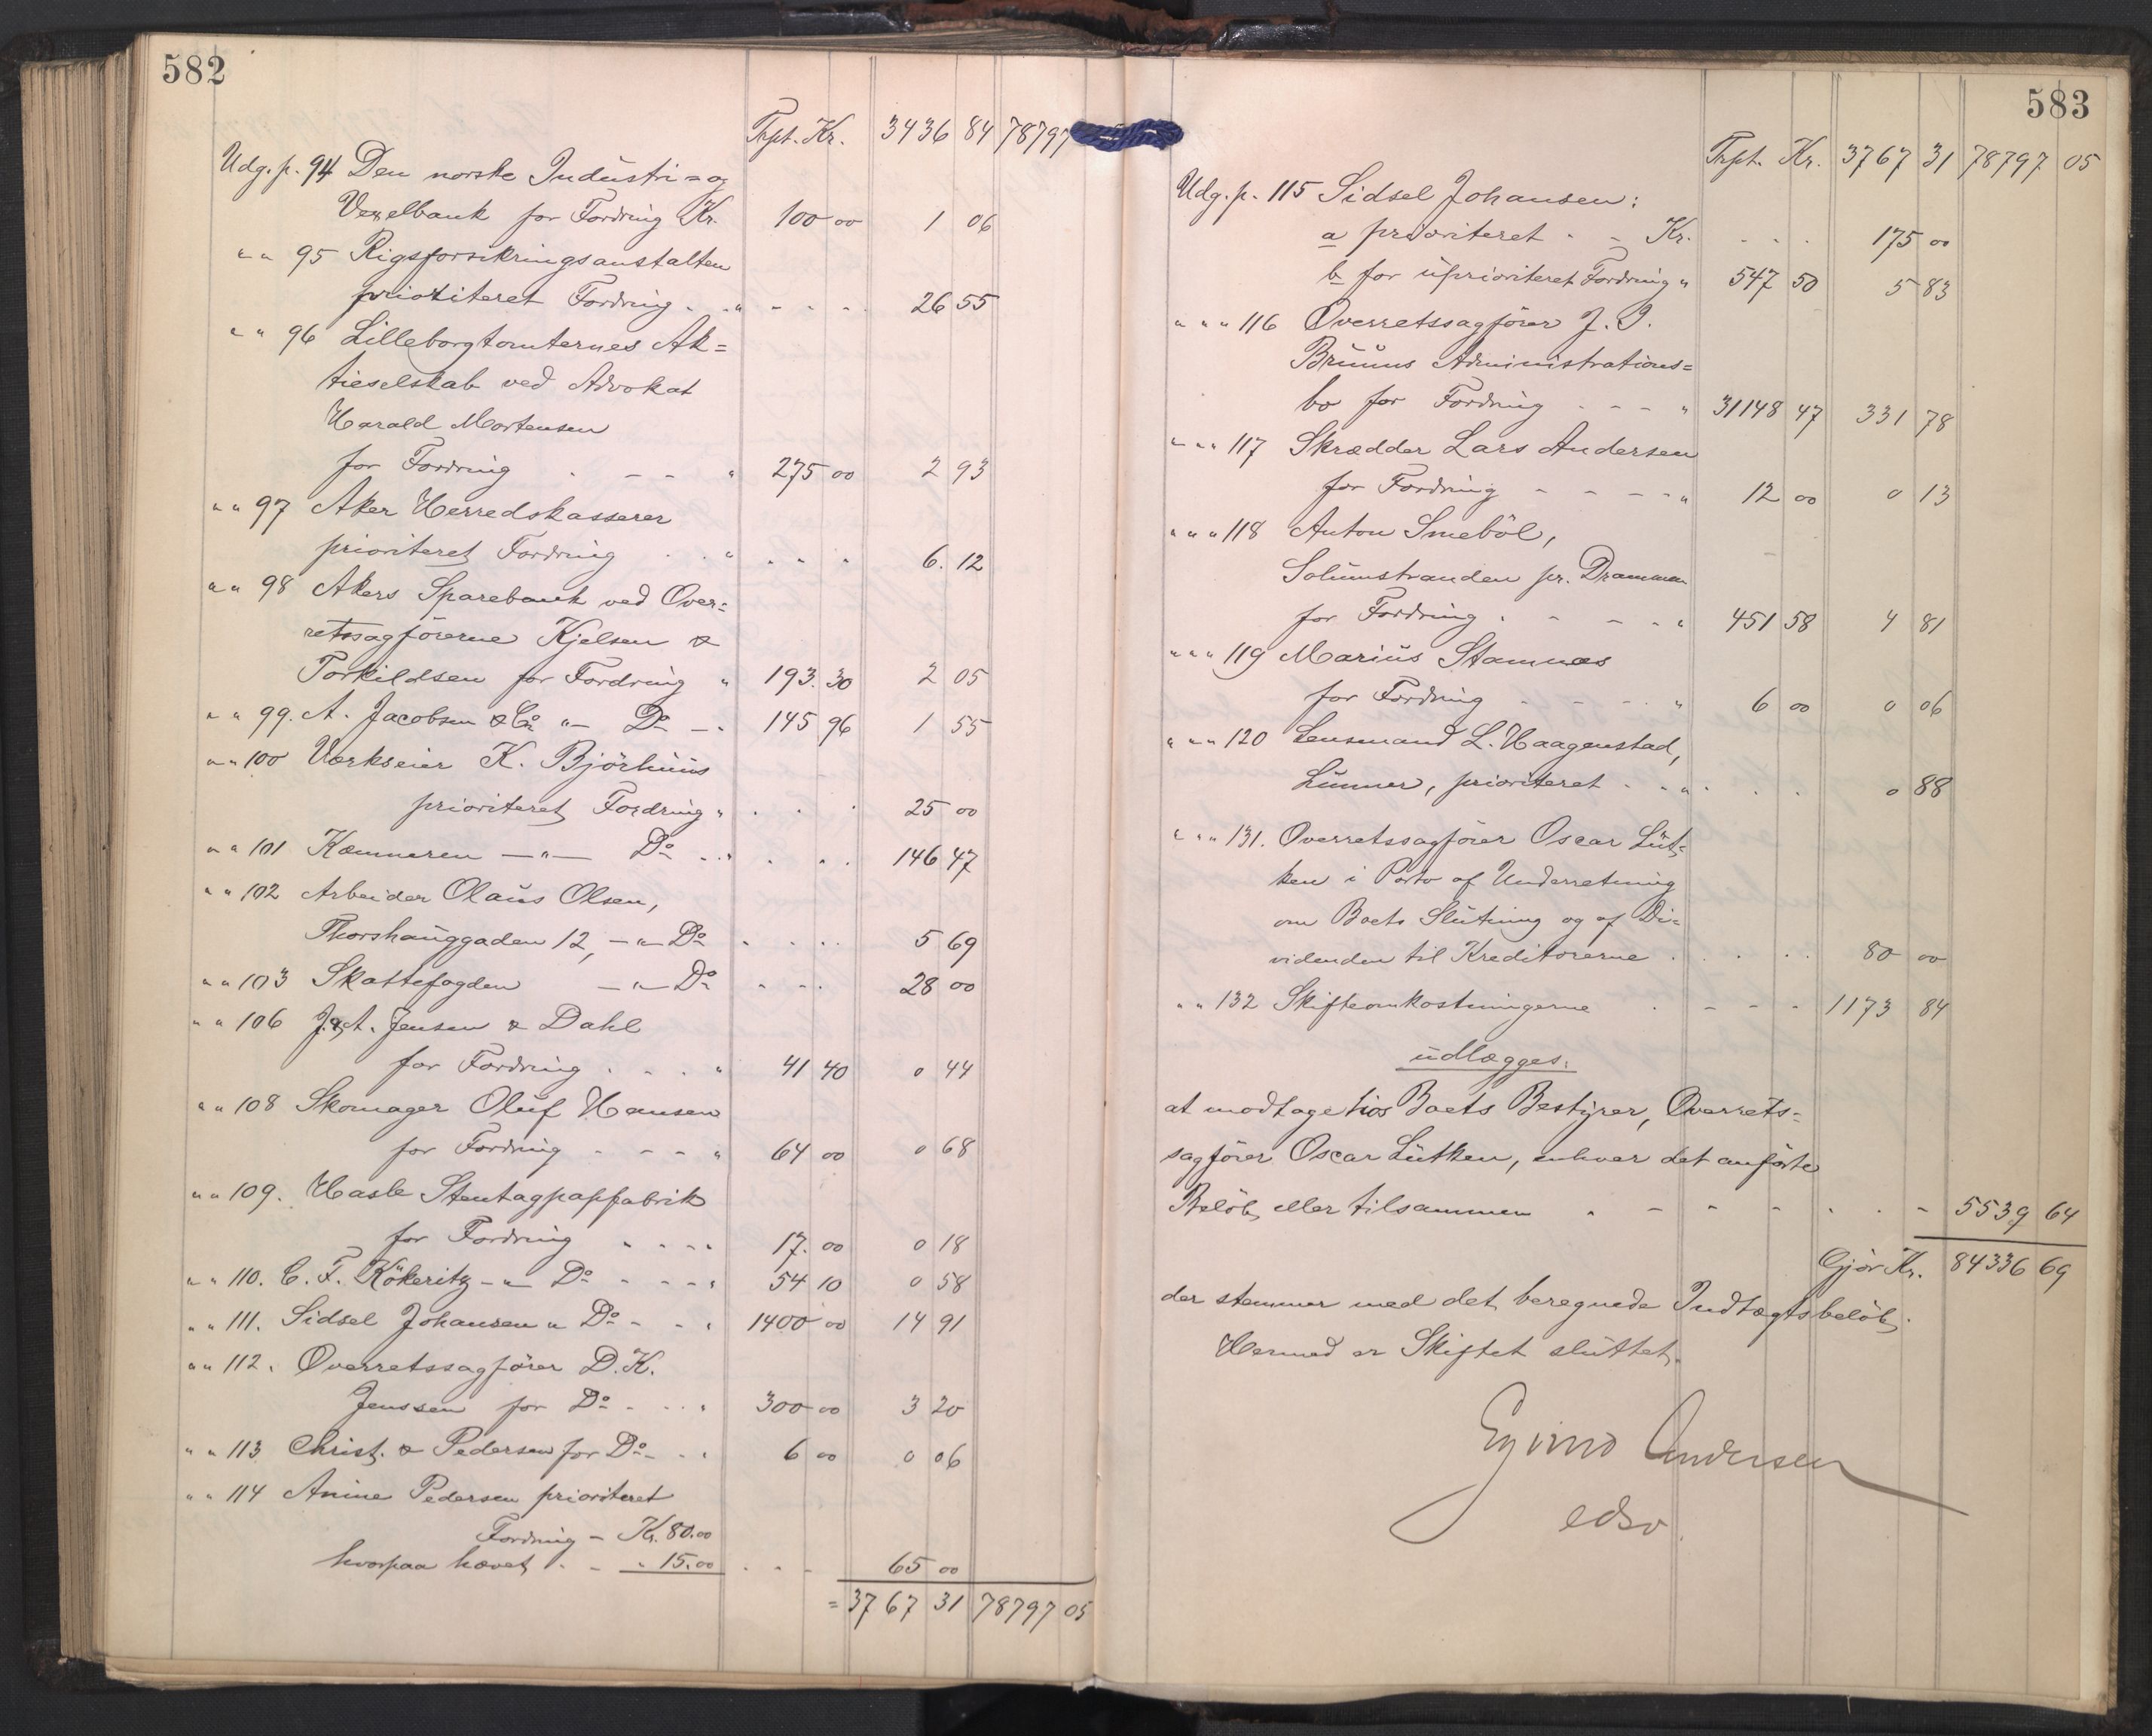 582
Trpt. Kr. 3436 84 78797
Udg. p. 94 Den norske Industri- og
Vexelbank for Fordring Kr. 100 00 1 06
" " 95 Rigsforsikringsanstalten
prioriteret Fordring . . " - - - - 26 55
" " 96 Lilleborgtomternes Ak=
tieselskab ved Advokat
Harald Mortensen
for Fordring . - - " 275 00 2 93
" " 97 Aker Herredskasserer
prioriteret Fordring . . " . . . 6. 12
" " 98 Akers Sparebank ved Over=
retssagförerne Kjelsen &
Torkildsen for Fordring " 193. 30 2 05
" " 99. A. Jacobsen & Co "- Do -. 145 96 1 55
" " 100 Værkseier K. Björhuus
prioriteret Fordring " . . . 25 00
" " 101 Kæmneren -"- Do . . " . . . 146 47
" " 102 Arbeider Olaus Olsen,
Thorshauggaden 12, -"- Do . . . . 5 69
" " 103 Skattefogden -"- Do - - - . 28 00
" " 106 J. & A. Jensen & Dahl
for Fordring . . . " 41 40 0 44
" " 108 Skomager Oluf Hansen
for Fordring - - - " 64 00 0 68
" " 109. Hasle Stentagpapfabrik
for Fordring " - - " 17. 00 0 18
" " 110. C. F. Kökeritz -"- Do - - - " 54 10 0 58
" " 111. Sidsel Johansen " Do - - " 1400 00 14 91
" " 112. Overretssagförer D. K.
Jenssen for Do - - . " 300 00 3 20
" " 113 Christ. & Pedersen for Do - . " 6 00 0 06
" " 114 Anine Pedersen prioriteret
Fordring - Kr. 80.00
hvorpaa hævet . - " 15.00 . - - 65 00
= 3767 31 78797 05
583
Trpt. Kr. 3767 31 78797 05
Udg. p. 115 Sidsel Johansen:
a prioriteret - - Kr. - - . 175 00
b for uprioriteret Fordring " 547 50 5 83
" " " 116 Overretssagförer J. J.
Bruuns Administrations=
bo for Fordring - - - " 31148 47 331 78
" " " 117 Skrædder Lars Andersen
for Fordring - - - - " 12 00 0 13
" " " 118 Anton Smeböl,
Solumstranden pr. Drammen
for Fordring . - - - " 451 58 4 81
" " " 119 Marius Stamnæs
for Fordring - - - . " 6 00 0 06
" " " 120 Lensmand L. Haagenstad,
Lunner, prioriteret . . " . . . 0 88
" " " 131. Overretssagförer Oscar Lüt=
ken i Porto af Underretning
om Boets Slutning og af Di=
videnden til Kreditorerne . . . . . 80 00
" " 132 Skifteomkostningerne . - - - 1173 84
udlægges.
at modtage hos Boets Bestyrer, Overrets=
sagförer Oscar Lütken, enhver det anförte
Belöb, eller tilsammen " - - - . . - 5539 64
Gjör Kr. 84336 69
der stemmer med det beregnede Indtægtsbelöb.
Hermed er Skiftet sluttet.
Eyvind Andersen
edsv.